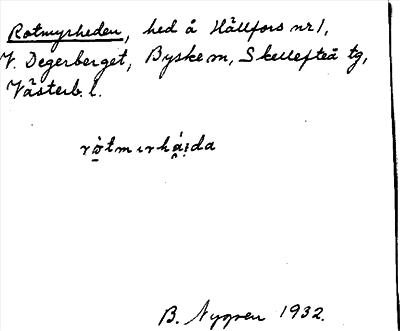 Rotmyrheden, hed å Hällfors nr 1,
V. Degerberget, Byske m, Skellefteå tg,
Västerb. l.
rò̱tmırhá̯i̯da
B. Nygren 1932.